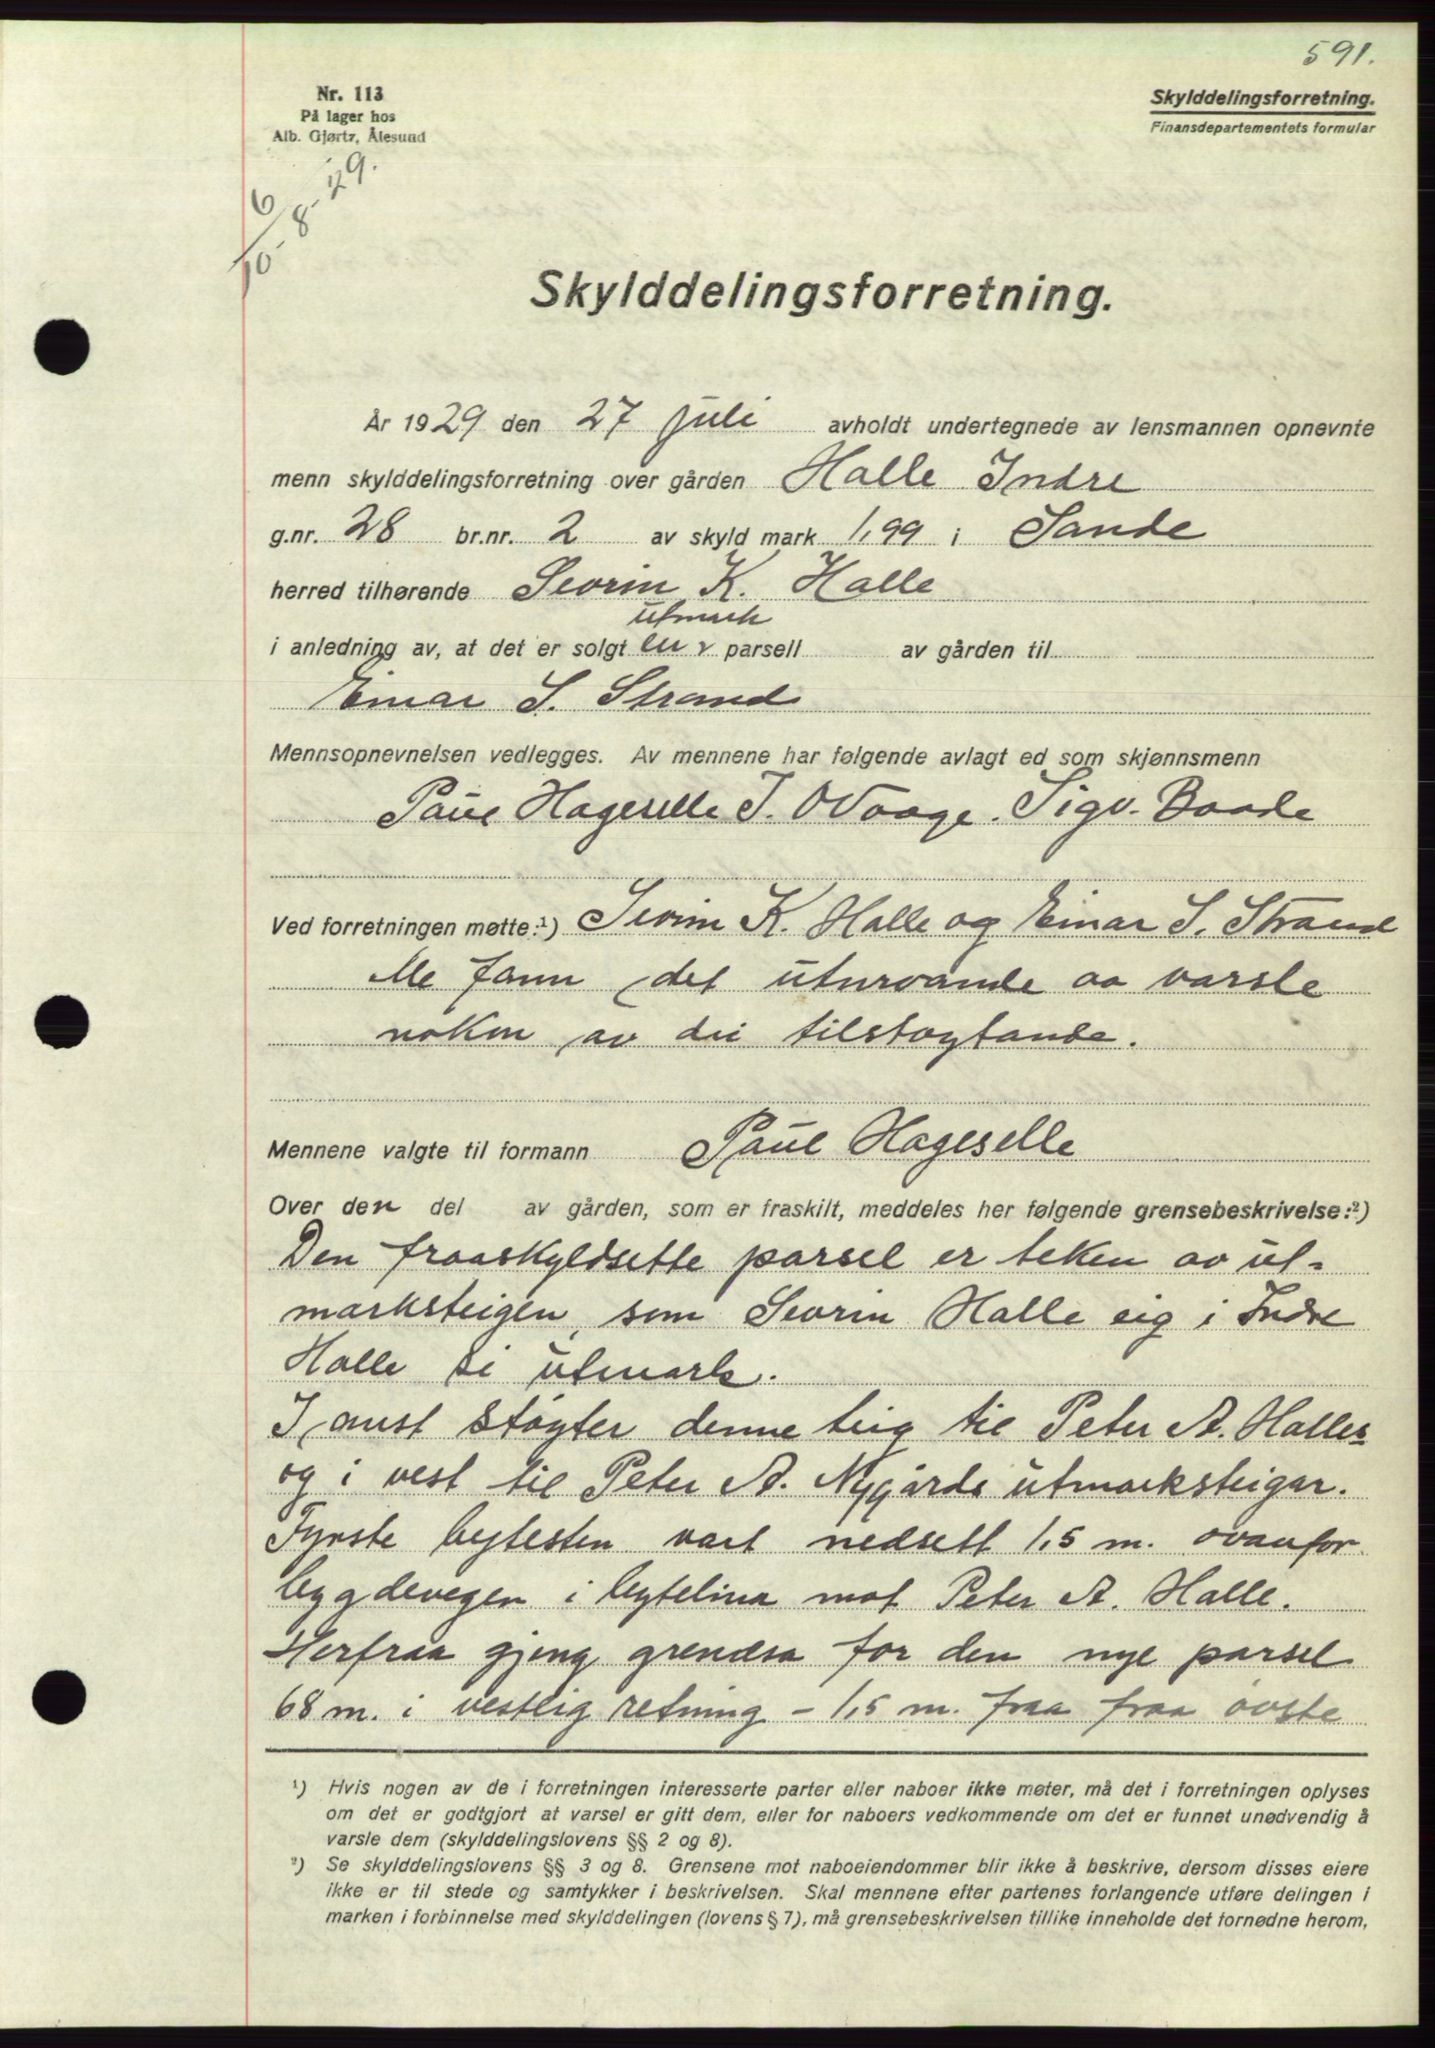 591.
Nr. 113
På lager hos
Alb. Gjørtz, Ålesund
Skylddelingsforretning.
Finansdepartementets formular
6/10-8-29.
Skylddelingsforretning.
År 1929 den 27 juli avholdt undertegnede av lensmannen opnevnte
menn skylddelingsforretning over gården Halle Indre
g.nr. 28 br.nr. 2 av skyld mark 1,99 i Sande
herred tilhørende Sevrin K. Halle
utmark
i anledning av, at det er solgt ein parsell av gården til
Einar S. Strand
Mennsopnevnelsen vedlegges. Av mennene har følgende avlagt ed som skjønnsmenn
Paul Hageselle J. Waage. Sigv. Baade
Ved forretningen møtte:¹) Sevrin K. Halle og Einar S. Strand
Me fann det uturvande aa varsle
noken av dei tilstøytande.
Mennene valgte til formann Paul Hageselle
Over den del av gården, som er fraskilt, meddeles her følgende grensebeskrivelse:²)
Den fraaskyldsette parsel er teken av ut-
marksteigen, som Sevrin Halle eig i Indre
Halle si utmark.
I aust støyter denne teig til Peter A. Halles
og i vest til Peter A. Nygårds utmarksteigar.
Fyrste bytesten vart nedsett 1,5 m. ovanfor
bygdevegen i bytelina mot Peter A. Halle.
Herfraa gjeng grendsa for den nye parsel
68 m. i vestlig retning - 1,5 m. fraa fraa øvste
¹) Hvis nogen av de i forretningen interesserte parter eller naboer ikke møter, må det i forretningen oplyses
om det er godtgjort at varsel er gitt dem, eller for naboers vedkommende om det er funnet unødvendig å
varsle dem (skylddelingslovens §§ 2 og 8).
²) Se skylddelingslovens §§ 3 og 8. Grensene mot naboeiendommer blir ikke å beskrive, dersom disses eiere
ikke er til stede og samtykker i beskrivelsen. Skal mennene efter partenes forlangende utføre delingen i
marken i forbinnelse med skylddelingen (lovens § 7), må grensebeskrivelsen tillike inneholde det fornødne herom,